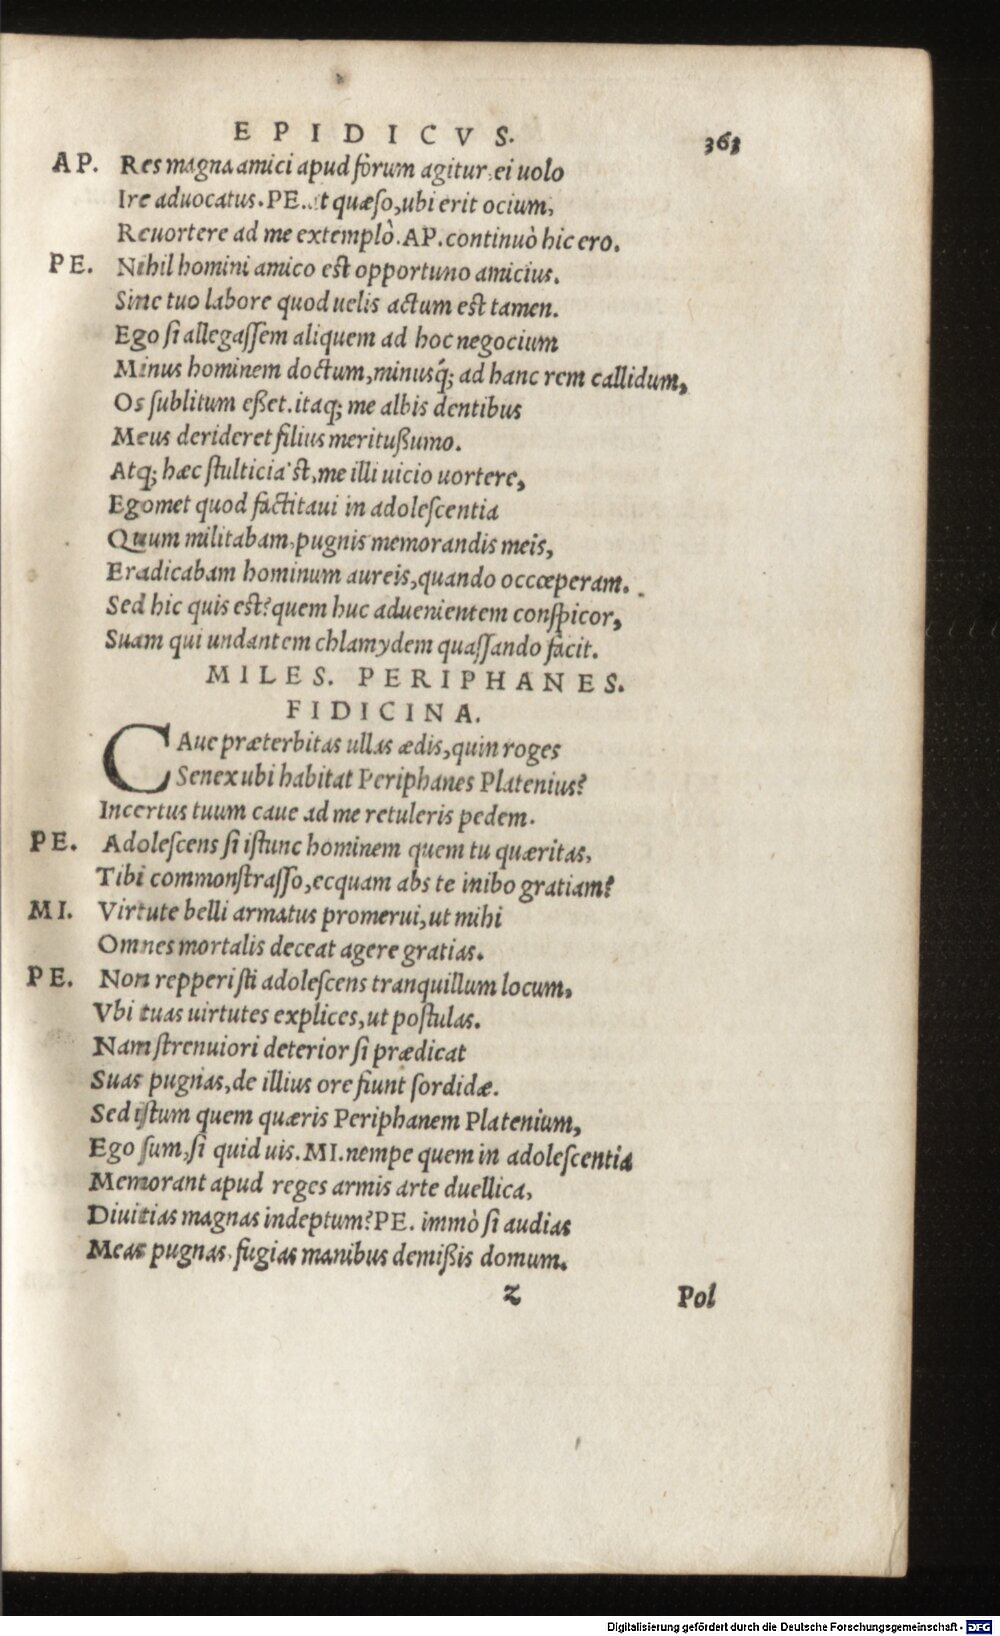 EPIDICVS. 363
AP. Res magna amici apud forum agitur, ei uolo
Ire aduocatus. PE. et quæſo, ubi erit ocium,
Reuortere ad me extemplò. AP. continuò hic ero.
PE. Nihil homini amico est opportuno amicius.
Sine tuo labore quod uelis actum est tamen.
Ego ſi allegaſſem aliquem ad hoc negocium
Minus hominem doctum, minusq́; ad hanc rem callidum,
Os ſublitum eßet. itaq; me albis dentibus
Meus derideret filius meritußumo.
Atq; hæc ſtulticia'st, me illi uicio uortere,
Egomet quod factitaui in adoleſcentia
Quum militabam, pugnis memorandis meis,
Eradicabam hominum aureis, quando occœperam.
Sed hic quis est? quem huc aduenientem conſpicor,
Suam qui undantem chlamydem quaſſando facit.
MILES. PERIPHANES.
FIDICINA.
CAue præterbitas ullas ædis, quin roges
Senex ubi habitat Periphanes Platenius?
Incertus tuum caue ad me retuleris pedem.
PE. Adoleſcens ſi iſtunc hominem quem tu quæritas,
Tibi commonſtraſſo, ecquam abs te inibo gratiam?
MI. Virtute belli armatus promerui, ut mihi
Omnes mortalis deceat agere gratias.
PE. Non repperiſti adoleſcens tranquillum locum,
Vbi tuas uirtutes explices, ut poſtulas.
Nam ſtrenuiori deterior ſi prædicat
Suas pugnas, de illius ore fiunt ſordidæ.
Sed iſtum quem quæris Periphanem Platenium,
Ego ſum, ſi quid uis. MI. nempe quem in adoleſcentia
Memorant apud reges armis arte duellica,
Diuitias magnas indeptum? PE. immò ſi audias
Meas pugnas, fugias manibus demißis domum.
z Pol
Digitalisierung gefördert durch die Deutsche Forschungsgemeinschaft - DFG